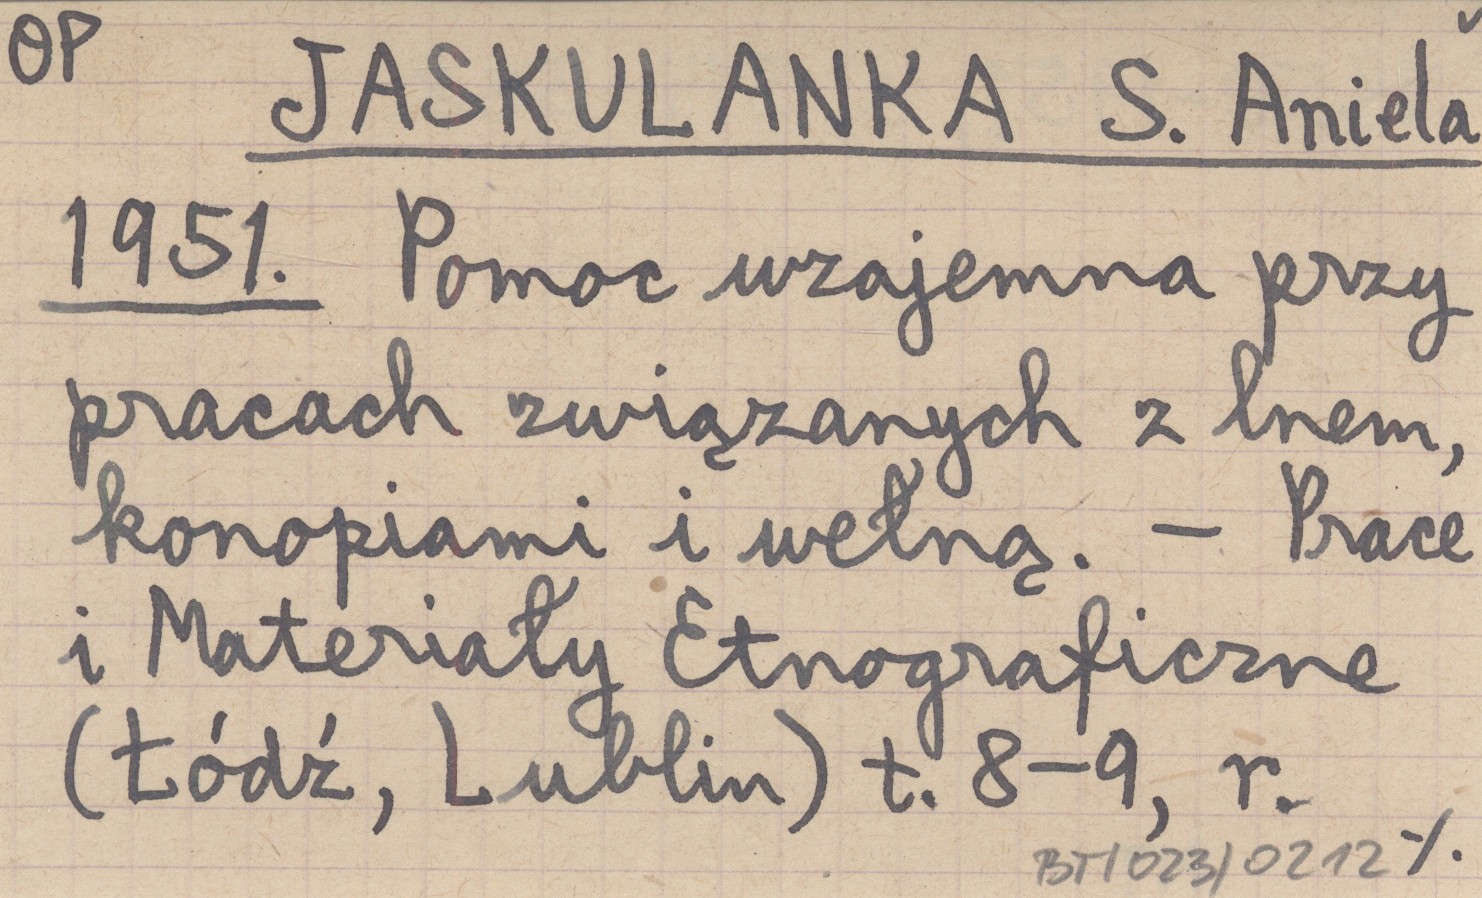 OP
JASKULANKA S. Aniela
1951. Pomoc wzajemna przy
pracach związanych z lnem,
konopiami i wełną. – Prace
i Materiały Etnograficzne
(Łódź, Lublin) t. 8–9, r.
BT/023/0212 -/.